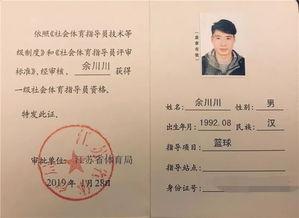 依照《社会体育指导员技术等
级制度》和《社会体育指导员评审
标准》,经审核, 余川川 获得
一级社会体育指导员资格。
特发此证。
审批单位:江苏省体育局
2019年1月28日
姓名: 余川川 性别: 男
出生年月: 1992.08 民族: 汉
指导项目: 篮球
指导站点:
身份证号: